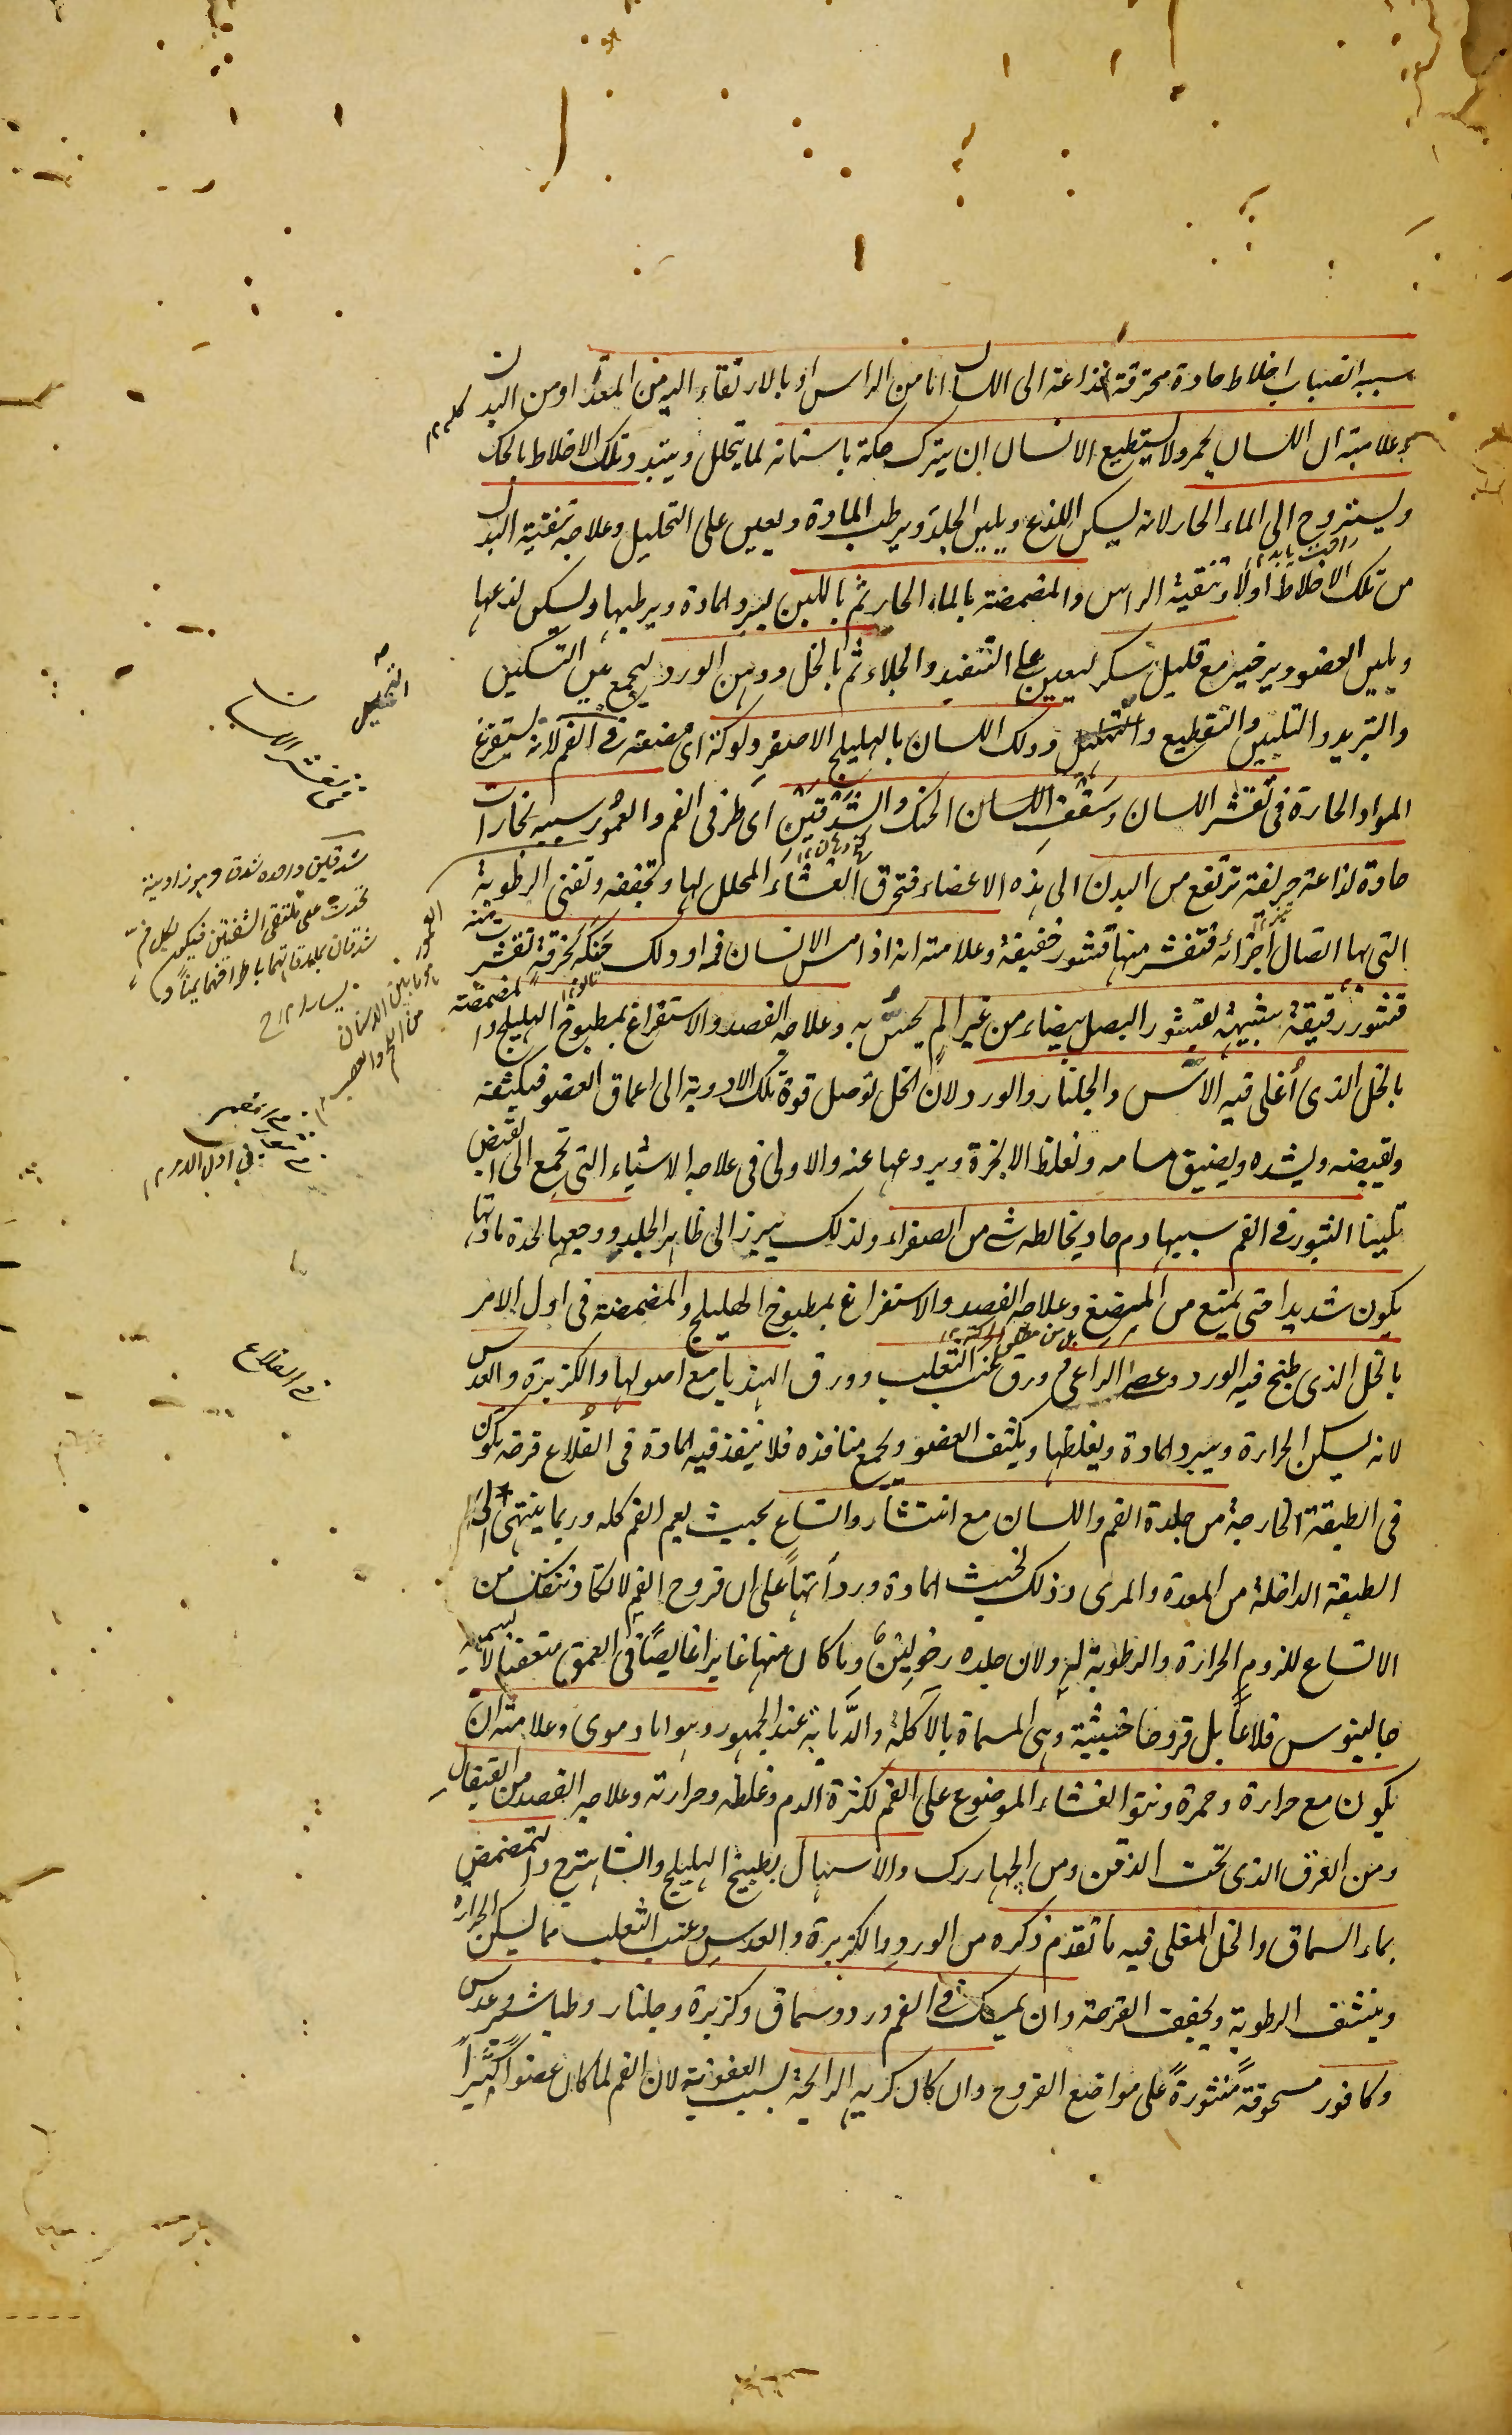 سببه انصباب اخلاط حادة محترقة لذاعة الى اللسان اما من الراس او بالارتقاء اليه من المعدة او من البدن كله
وعلامته ان اللسان يحمر ولا يستطيع الانسان ان يترك حكه باسنانه لما يتحلل ويتبدد تلك الاخلاط بالحك
ويستروح الى الماء الحار لانه يسكن اللذع ويلين الجلد ويرطب المادة ويعين على التحليل وعلاجه تنقية البدن
من تلك الاخلاط اولا وتنقية الراس والمضمضة بالماء الحار ثم باللبن ليبرد المادة ويرطبها ويسكن لذعها
ويلين العضو ويرخيه مع قليل سكر ليعين على التنفيذ والجلاء ثم بالخل ودهن الورد ليجمع بين التسكين
والتبريد والتليين والتقطيع والتحليل ودلك اللسان بالهليلج الاصفر ولوكه اى مضغه فى الفم لانه يستفرغ
المواد الحارة فى تقشر اللسان وسقف اللسان الحنك والشدقين اى طرفى الفم والعمور سببه بخارات
حادة لذاعة حريفة ترتفع من البدن الى هذه الاعضاء فتحرق الغشاء المجلل لها وتجففه وتفنى الرطوبة
التى بها اتصال اجزائه فتقشر منها قشور خفيفة وعلامته انه اذا مس الانسان فمه او دلك حنكه بخرقة تقشر منه
قشور رقيقة شبيهة بقشور البصل بيضاء من غير الم يحس به وعلاجه الفصد والاستفراغ بمطبوخ الهليلج والمضمضة
بالخل الذى أغلى فيه الآس والجلنار والورد لان الخل توصل قوة تلك الادوية الى اعماق العضو فيكثفه
ويقبضه ويشده ويضيق مسامه ويغلظ الابخرة ويردعها عنه والاولى فى علاجه الاشياء التى تجمع الى القبض
تليينا البثور فى الفم سببها دم حاد يخالطه شى من الصفراء ولذلك يبرز الى ظاهر الجلد ووجعها لحدة مادتها
يكون شديدا حتى يمنع من المضغ وعلاجه الفصد والاستفراغ بمطبوخ الهليلج والمضمضة فى اول الامر
بالخل الذى طبخ فيه الورد وعصا الراعى وورق عنب الثعلب وورق الهندبا مع اصولها والكزبرة والعدس
لانه يسكن الحرارة ويبرد المادة ويغلظها ويكثف العضو ويجمع منافذه فلا ينفذ فيه المادة فى القلاع قرحة يكون
فى الطبقة الخارجة من جلدة الفم واللسان مع انتشار واتساع بحيث يعم الفم كله وربما ينتهى الى
الطبقة الداخلة من المعدة والمرى وذلك لخبث المادة ورداءتها على ان قروح الفم لا تكاد تنفك من
الاتساع للزوم الحرارة والرطوبة له ولان جلده رخو لين وما كان منها غايرا غايصا فى العمق متعفنا لا يسميه
جالينوس قلاعا بل قروحا خبيثة وهى المسماة بالآكلة والذبابة عند الجمهور وهو اما دموى وعلامته ان
يكون مع حرارة وحمرة ونتو الغشاء الموضوع على الفم لكثرة الدم وغلظه وحرارته وعلاجه الفصد من القيفال
ومن العرق الذى تحت الذقن ومن الجهاررك والاسهال بطبيخ الهليلج والشاهترج والتمضمض
بماء السماق والخل المغلى فيه ما تقدم ذكره من الورد والكزبرة والعدس وعنب الثعلب مما يسكن الحرارة
وينشف الرطوبة ويجفف القرحة وان يمسك فى الفم ورد وسماق وكزبرة وجلنار وطباشير وعدس
وكافور مسحوقة منثورة على مواضع القروح وان كان كريه الرايحة بسبب العفونة لان الفم لما كان عضوا كثيرا
التحليل
فى تقشر اللسان
شدقين واحده شدق وهو زاوية
تحدث على ملتقى الشفتين فيكون لكل فم
شدقان
العمور
ما بين الاسنان
من اللحم
فى القلاع